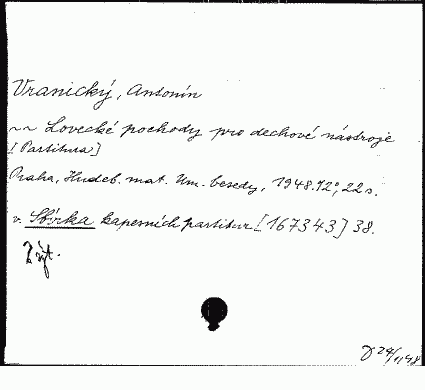 Vranický, Antonín
~~ Lovecké pochody pro dechové nástroje
[Partitura]
Praha, Hudeb. mat. Um. besedy, 1948. 12°, 22 s.
v. Sbírka kapesních partitur [167343] 38.